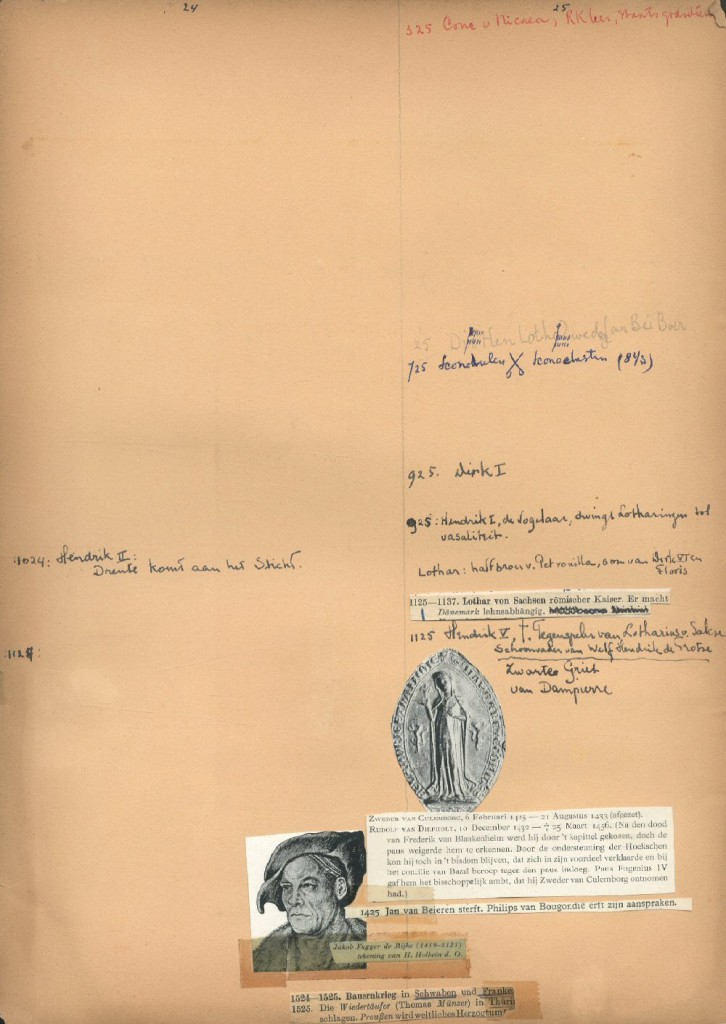 24
25
325 Conc v Nicaea, RKleer,
25
725 Iconodulen Iconoclasten (843)
925. Dirk I
925: Hendrik I, de Vogelaar, dwingt Lotharingen tot
vasaliteit.
1024: Hendrik II:
Drente komt aan het Sticht.
Lothar: halfbroer v. Petronilla, oom van Dirk VI en
Floris
1125—1137. Lothar von Sachsen römischer Kaiser. Er macht
Dänemark lehnsabhängig.
1125 Hendrik V, †. Tegenspeler van Lotharius v. Sakse
Schoonvader van Welf Hendrik de Trotse
1124:
Zwarte Griet
van Dampierre
Zweder van Culemborg, 6 Februari 1425 — 21 Augustus 1433 (afgezet).
Rudolf van Diepholt, 10 December 1432 — † 25 Maart 1456. (Na den dood
van Frederik van Blankenheim werd hij door 't kapittel gekozen, doch de
paus weigerde hem te erkennen. Door de ondersteuning der Hoekschen
kon hij toch in 't bisdom blijven, dat zich in zijn voordeel verklaarde en bij
het concilie van Bazel beroep tegen den paus indiende. Paus Eugenius IV
gaf hem het bisschoppelijk ambt, dat hij Zweder van Culemborg ontnomen
had.)
1425 Jan van Beieren sterft. Philips van Bourgondië erft zijn aanspraken.
Jakob Fugger de Rijke (1459-1525)
tekening van H. Holbein d. O.
1524—1525. Bauernkrieg in Schwaben und Franken
1525. Die Wiedertäufer (Thomas Münzer) in Thürin
schlagen. Preußen wird weltliches Herzogtum